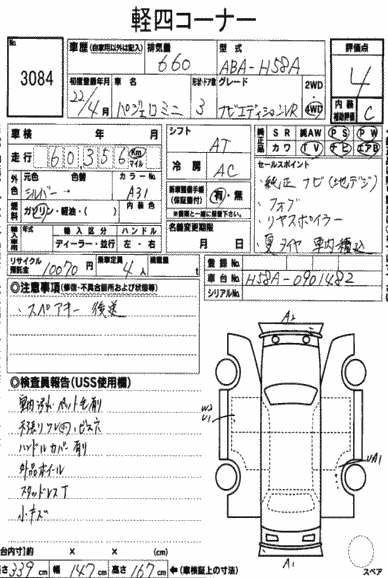 軽四コーナー
No. 3084
車歴 (自家用以外は記入) 排気量 660 型式 ABA-H58A 評価点 4
初度登録年月 22/4月 車名 パジェロミニ 形状・ドア数 3 グレード ナビエディションVR 2WD・4WD 内装補助評価 C
車検 年 月 シフト AT 純正品 SR 純AW PS PW カワ TV ナビ エアB
走行 60356 Km マイル 冷房 AC セールスポイント
外色 元色 シルバー 色替 カラーNo. A31 新車整備手帳(保証書付) 有・無
・純正ナビ(地デジ)
燃料 ガソリン・軽油・( ) 内装色 ※書類と一緒に保管下さい。
・フォグ
・リヤスポイラー
輸入車用 年式 輸入区分 ハンドル ディーラー・並行 左・右 名義変更期限 月 日
・夏タイヤ 車内積込
リサイクル預託金 10070円 乗車定員 4人 積載量 t 登録No.
車台No. H58A-0901482
シリアルNo.
◎注意事項 (修復・不具合箇所および状態等)
・スペアキー 後送
A2
◎検査員報告 (USS使用欄)
W2
U1
UA1
ハンドルカバー有
外品ホイール
スタッドレスT
小キズ
荷台内寸】約 × × (cm)
長さ 339 cm 幅 147 cm 高さ 167 cm ←(車検証上の寸法)
A1
スペア